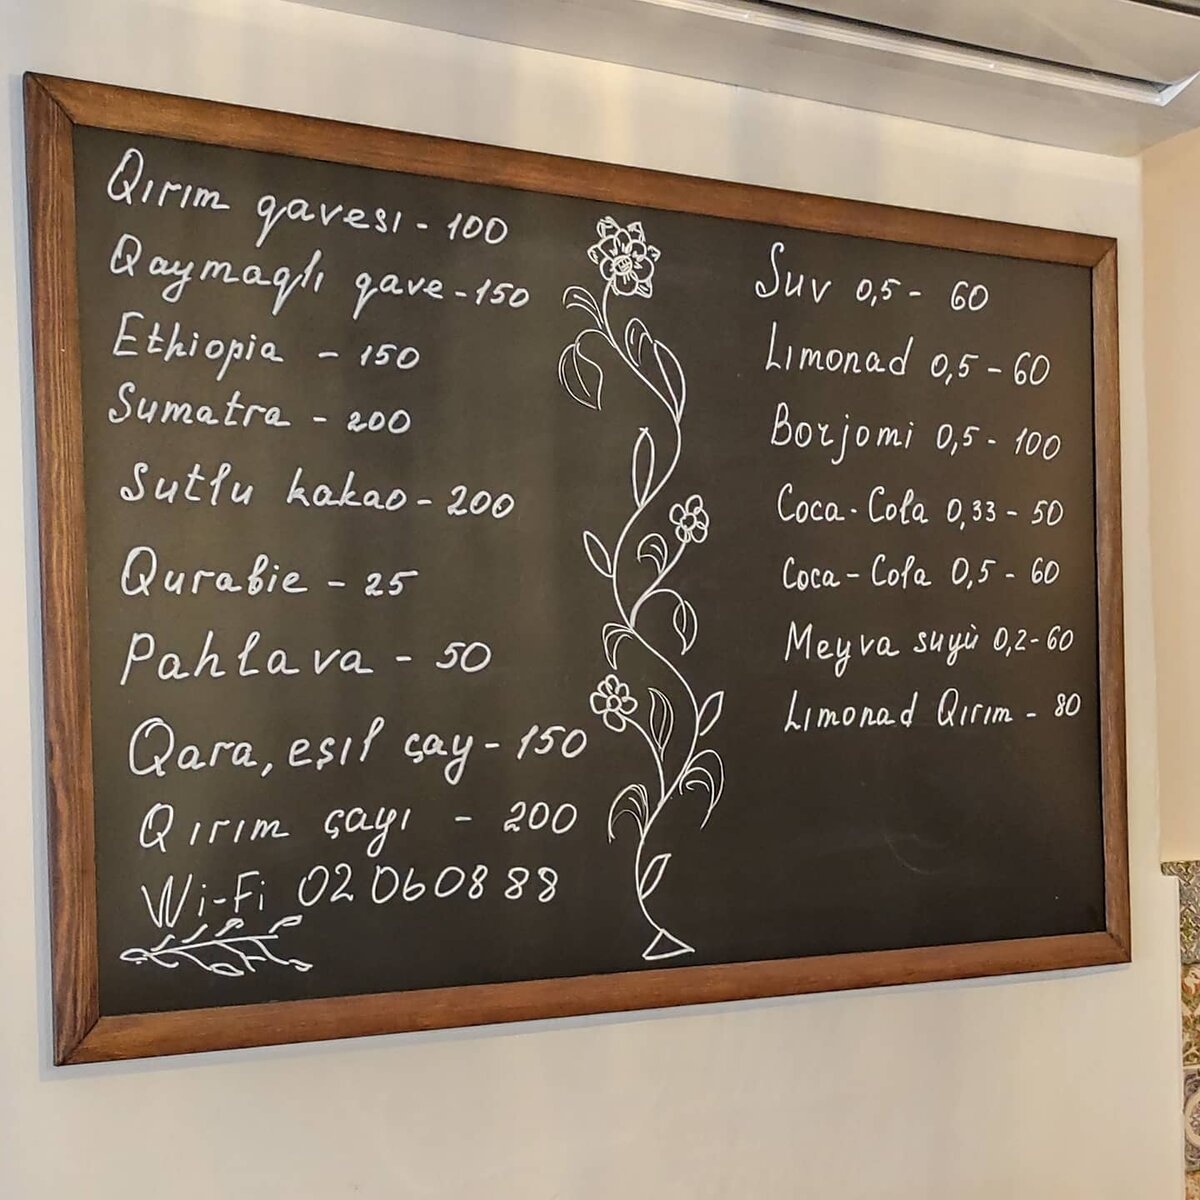 Qırım qavesı - 100
Qaymaqlı qave - 150
Ethiopia - 150
Sumatra - 200
Sutlu kakao - 200
Qurabie - 25
Pahlava - 50
Qara, eşıl çay - 150
Qırım çayı - 200
Wi-Fi 02060888
Suv 0,5 - 60
Lımonad 0,5 - 60
Borjomi 0,5 - 100
Coca-Cola 0,33 - 50
Coca-Cola 0,5 - 60
Meyva suyù 0,2 - 60
Lımonad Qırım - 80